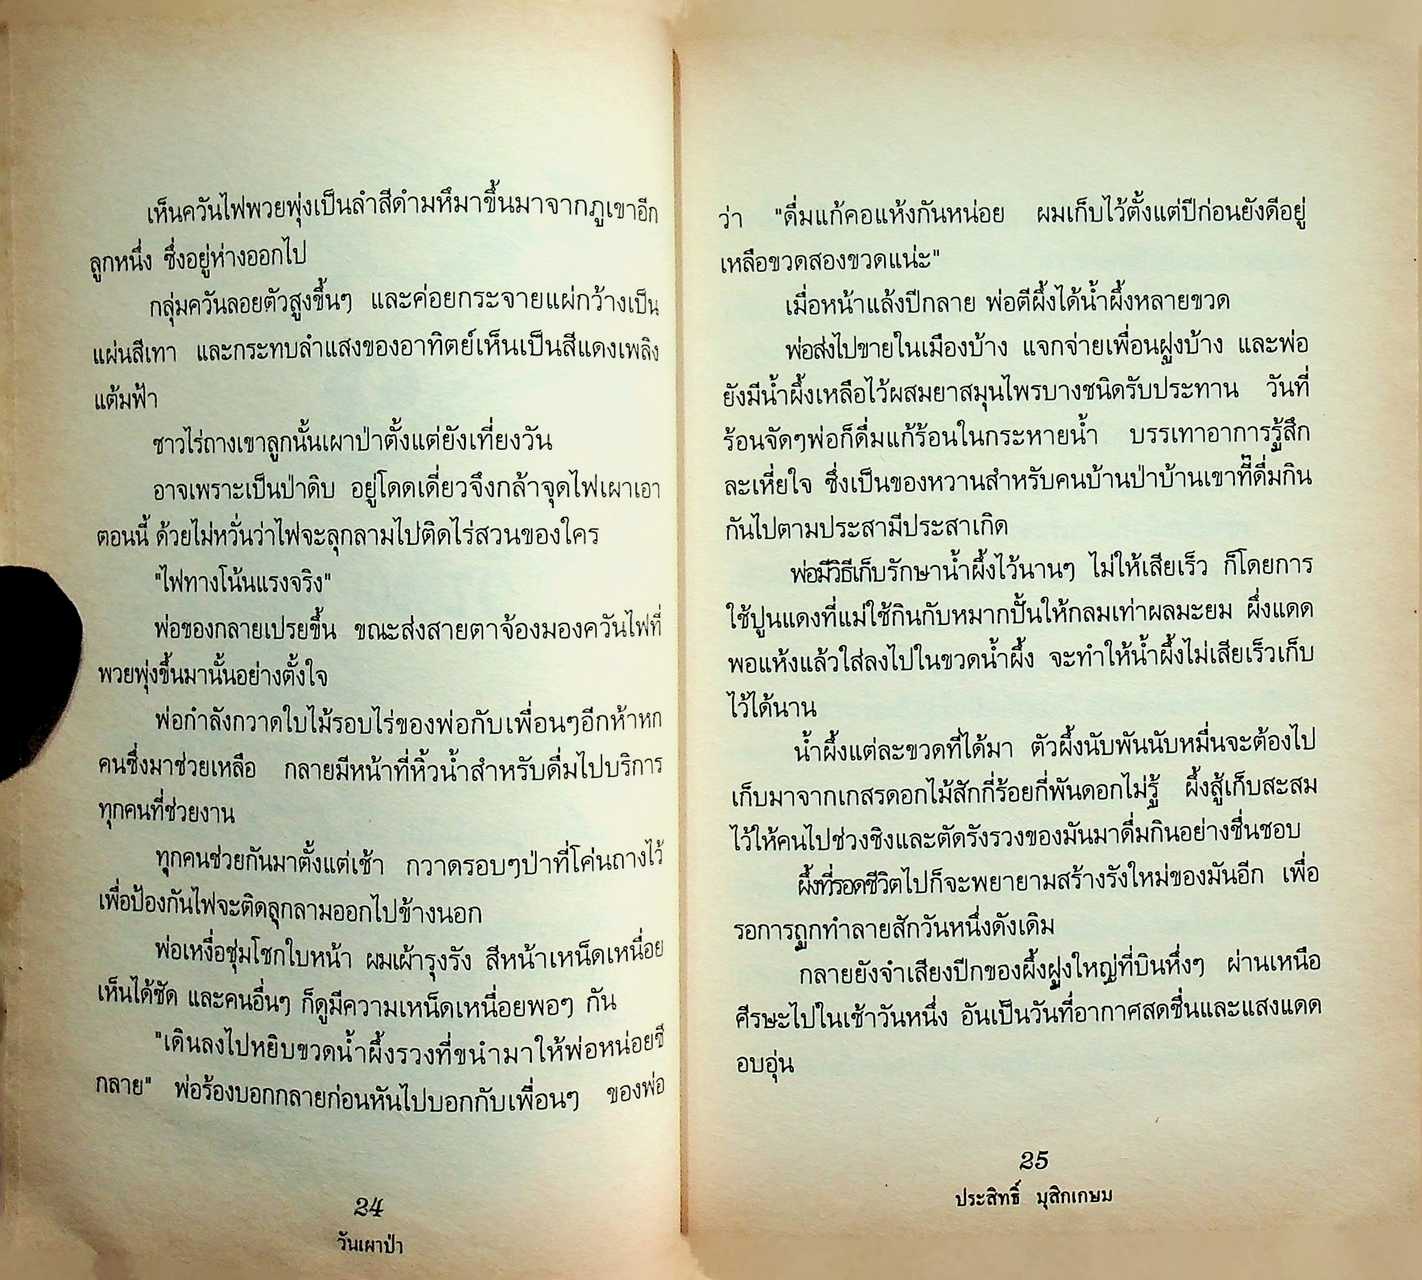 เห็นควันไฟพวยพุ่งเป็นลำสีดำมหึมาขึ้นมาจากภูเขาอีก
ลูกหนึ่ง ซึ่งอยู่ห่างออกไป
กลุ่มควันลอยตัวสูงขึ้นๆ และค่อยกระจายแผ่กว้างเป็น
แผ่นสีเทา และกระทบลำแสงของอาทิตย์เห็นเป็นสีแดงเพลิง
แต้มฟ้า
ชาวไร่ถางเขาลูกนั้นเผาป่าตั้งแต่ยังเที่ยงวัน
อาจเพราะเป็นป่าดิบ อยู่โดดเดี่ยวจึงกล้าจุดไฟเผาเอา
ตอนนี้ ด้วยไม่หวั่นว่าไฟจะลุกลามไปติดไร่สวนของใคร
"ไฟทางโน้นแรงจริง"
พ่อของกลายเปรยขึ้น ขณะส่งสายตาจ้องมองควันไฟที่
พวยพุ่งขึ้นมานั้นอย่างตั้งใจ
พ่อกำลังกวาดใบไม้รอบไร่ของพ่อกับเพื่อนๆอีกห้าหก
คนซึ่งมาช่วยเหลือ กลายมีหน้าที่หิ้วน้ำสำหรับดื่มไปบริการ
ทุกคนที่ช่วยงาน
ทุกคนช่วยกันมาตั้งแต่เช้า กวาดรอบๆป่าที่โค่นถางไว้
เพื่อป้องกันไฟจะติดลุกลามออกไปข้างนอก
พ่อเหงื่อชุ่มโชกใบหน้า ผมเผ้ารุงรัง สีหน้าเหน็ดเหนื่อย
เห็นได้ชัด และคนอื่นๆ ก็ดูมีความเหน็ดเหนื่อยพอๆ กัน
"เดินลงไปหยิบขวดน้ำผึ้งรวงที่ขนำมาให้พ่อหน่อยซี
กลาย" พ่อร้องบอกกลายก่อนหันไปบอกกับเพื่อนๆ ของพ่อ
24
วันเผาป่า
ว่า "ดื่มแก้คอแห้งกันหน่อย ผมเก็บไว้ตั้งแต่ปีก่อนยังดีอยู่
เหลือขวดสองขวดแน่ะ"
เมื่อหน้าแล้งปีกลาย พ่อตีผึ้งได้น้ำผึ้งหลายขวด
พ่อส่งไปขายในเมืองบ้าง แจกจ่ายเพื่อนฝูงบ้าง และพ่อ
ยังมีน้ำผึ้งเหลือไว้ผสมยาสมุนไพรบางชนิดรับประทาน วันที่
ร้อนจัดๆพ่อก็ดื่มแก้ร้อนในกระหายน้ำ บรรเทาอาการรู้สึก
ละเหี่ยใจ ซึ่งเป็นของหวานสำหรับคนบ้านป่าบ้านเขาที่ดื่มกิน
กันไปตามประสามีประสาเกิด
พ่อมีวิธีเก็บรักษาน้ำผึ้งไว้นานๆ ไม่ให้เสียเร็ว ก็โดยการ
ใช้ปูนแดงที่แม่ใช้กินกับหมากปั้นให้กลมเท่าผลมะยม ผึ่งแดด
พอแห้งแล้วใส่ลงไปในขวดน้ำผึ้ง จะทำให้น้ำผึ้งไม่เสียเร็วเก็บ
ไว้ได้นาน
น้ำผึ้งแต่ละขวดที่ได้มา ตัวผึ้งนับพันนับหมื่นจะต้องไป
เก็บมาจากเกสรดอกไม้สักกี่ร้อยกี่พันดอกไม่รู้ ผึ้งสู้เก็บสะสม
ไว้ให้คนไปช่วงชิงและตัดรังรวงของมันมาดื่มกินอย่างชื่นชอบ
ผึ้งที่รอดชีวิตไปก็จะพยายามสร้างรังใหม่ของมันอีก เพื่อ
รอการถูกทำลายสักวันหนึ่งดังเดิม
กลายยังจำเสียงปีกของผึ้งฝูงใหญ่ที่บินหึ่งๆ ผ่านเหนือ
ศีรษะไปในเช้าวันหนึ่ง อันเป็นวันที่อากาศสดชื่นและแสงแดด
อบอุ่น
25
ประสิทธิ์ มุสิกเกษม